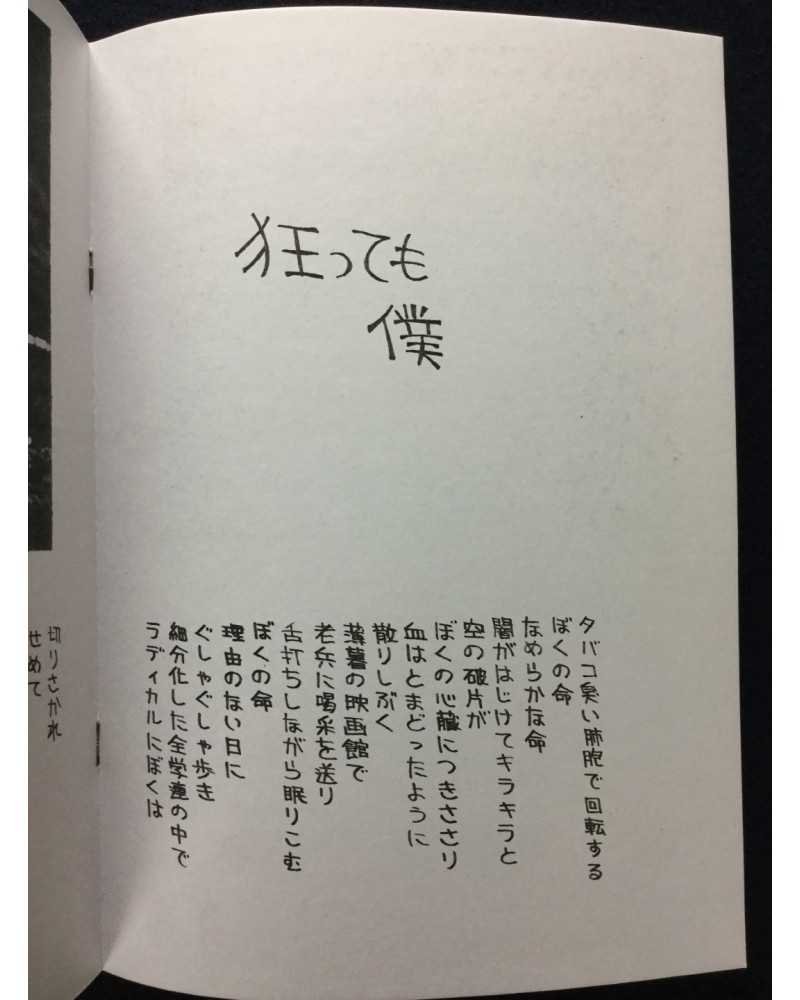 狂っても
僕
タバコ臭い肺胞で回転する
ぼくの命
なめらかな命
闇がはじけてキラキラと
空の破片が
ぼくの心臓につきささり
血はとまどったように
散りしぶく
薄暮の映画館で
老兵に喝采を送り
舌打ちしながら眠りこむ
ぼくの命
理由のない日に
ぐしゃぐしゃ歩き
細分化した全学連の中で
ラディカルにぼくは
切りさかれ
せめて